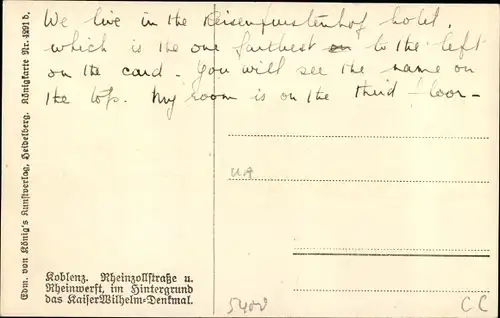 We live in the Reisenfurstenhof hotel.
which is the one furthest on to the left
on the card. You will see the name on
the top. My room is on the third floor -
UA
Koblenz. Rheinzollstraße u.
Rheinwerft, im Hintergrund
das Kaiser Wilhelm=Denkmal.
Edm. von König's Kunstverlag, Heidelberg. Königkarte Nr. 4291 b.
5400
CC